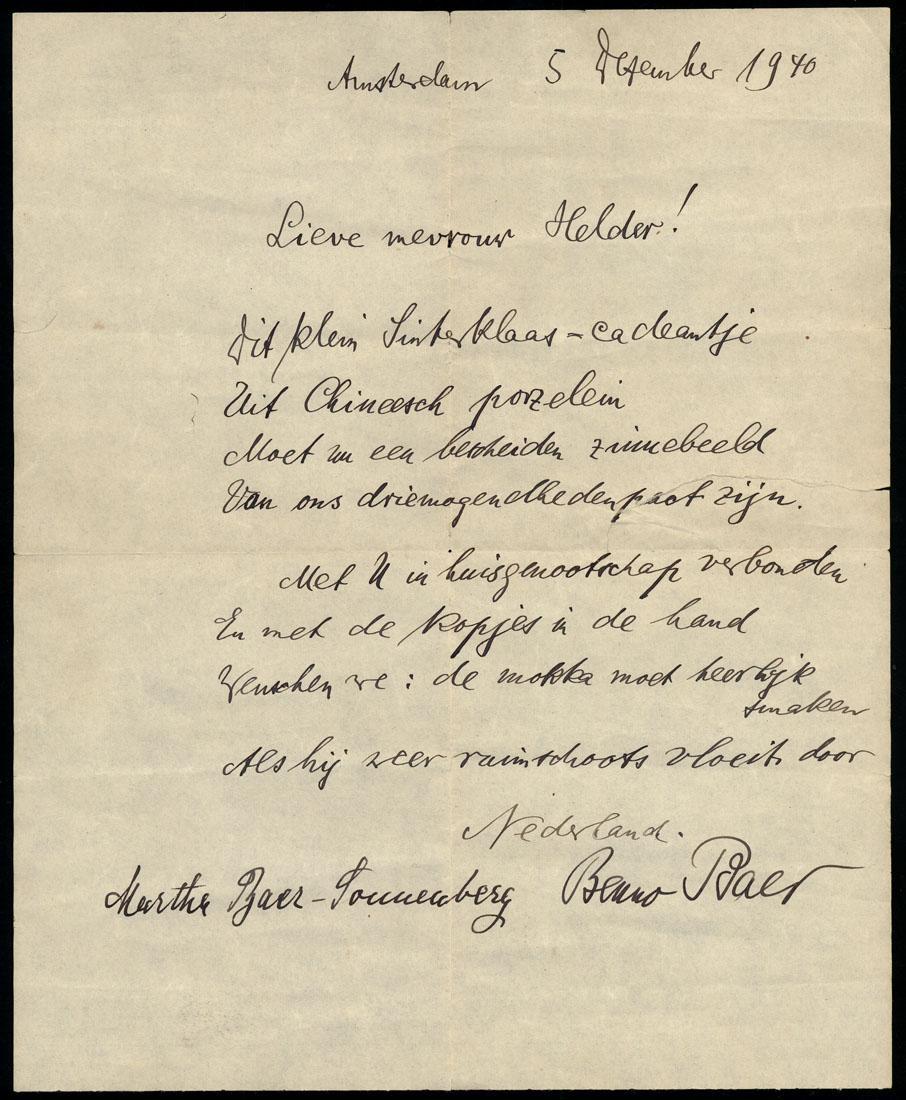 Amsterdam 5 Dezember 1940
Lieve mevrouw Helder!
Dit klein Sinterklaas-cadeautje
Uit Chineesch porzelein
Moet nu een bescheiden zinnebeeld
Van ons driemogendhedenpact zijn.
Met U in huisgenootschap verbonden
En met de kopjes in de hand
Wenschen we: de mokka moet heerlijk
smaken
Als hij zeer ruimschoots vloeit door
Nederland.
Martha Baer-Sonnenberg Benno Baer